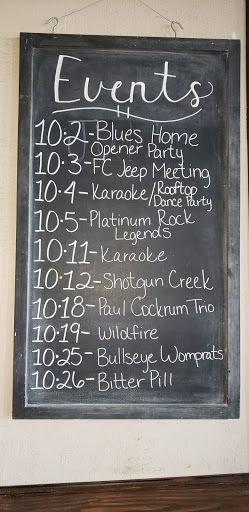 Events
10·2-Blues Home
Opener Party
10·3-FC Jeep Meeting
10·4-Karaoke/Rooftop
Dance Party
10·5-Platinum Rock
Legends
10·11-Karaoke
10·12-Shotgun Creek
10·18-Paul Cockrum Trio
10·19-Wildfire
10·25-Bullseye Womprats
10·26-Bitter Pill